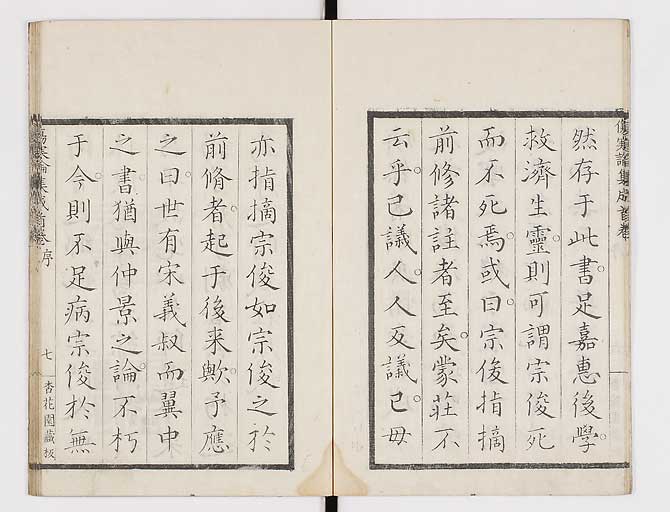 然存于此書足嘉惠後學
救濟生靈則可謂宗俊死
而不死焉或曰宗俊指摘
前修諸註者至矣蒙莊不
云乎已議人人亦議已毋
亦指摘宗俊如宗俊之於
前脩者起于後来歟予應
之曰世有宋義叔而翼中
之書猶與仲景之論不朽
于今則不足病宗俊於無
傷寒論集成首卷
傷寒論集成首卷 序
七
杏花園藏板